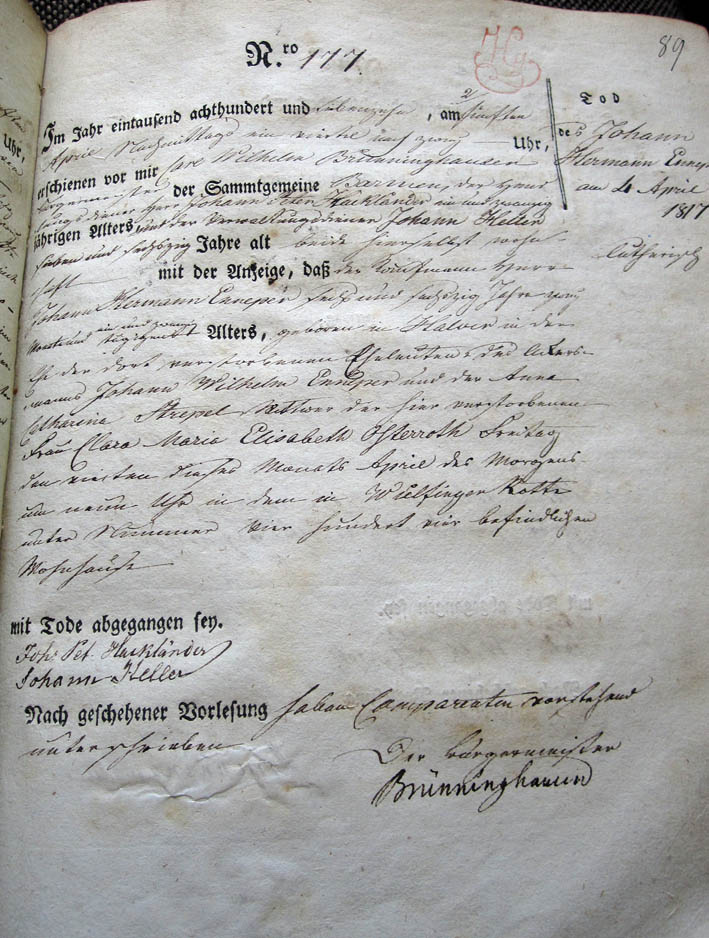 N.ro 177.
89
Im Jahr eintausend achthundert und siebenzehn, am fünften
April Nachmittags ein viertel nach zwey Uhr,
erschienen vor mir Wilhelm Brünninghausen
Bürgermeister der Sammtgemeine Barmen, der Herr
Johann Peter Hackländer ein und zwanzig
jährigen Alters und der Verwaltungsdiener Johann Heller
sieben und sechszig Jahre alt beide hierselbst wohn
haft mit der Anzeige, daß der Kaufmann Herr
Johann Hermann Enneper sechs und sechszig Jahre zwey
Monate und ein und zwanzig Tage Alters, geboren in Halver in der
Ehe der dort verstorbenen Eheleuten, des Ackers-
manns Johann Wilhelm Enneper und der Anna
Catharina Strepel Wittwer der hier verstorbenen
Frau Clara Maria Elisabeth Osterroth Freitag
den vierten dieses Monats April des Morgens
um neun Uhr in dem in Wülfinger Rotte
unter Nummer vier hundert vier befindlichen
Wohnhause
mit Tode abgegangen sey.
Joh. Pet. Hackländer
Johann Heller
Nach geschehener Vorlesung haben Comparenten vorstehend
unterschrieben
Der Bürgermeister
Brünninghausen
Tod
des Johann
Hermann Enneper
am 4 April
1817
lutherisch